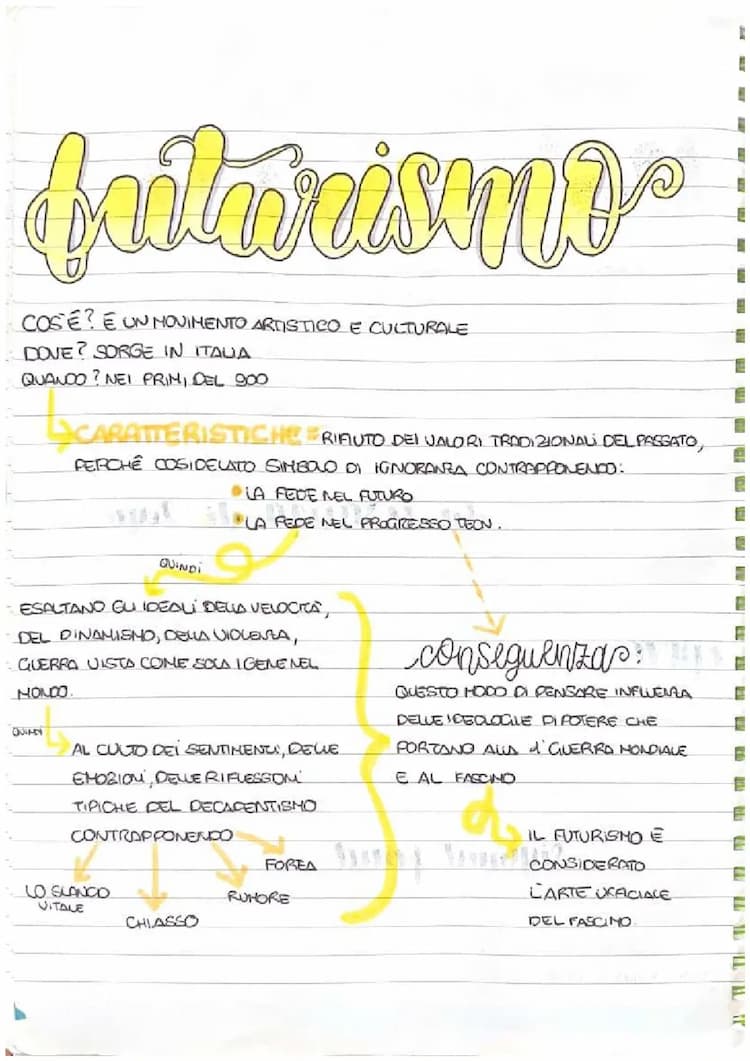 futurismo
COS'É? É UN MOVIMENTO ARTISTICO E CULTURALE
DOVE? SORGE IN ITALIA
QUANDO? NEI PRIMI DEL 900
CARATTERISTICHE = RIFIUTO DEI VALORI TRADIZIONALI DEL PASSATO,
PERCHÉ COSIDELATO SIMBOLO DI IGNORANZA CONTRAPPONENDO:
• LA FEDE NEL FUTURO
• LA FEDE NEL PROGRESSO TECN.
QUINDI
ESALTANO GLI IDEALI DELLA VELOCITÀ,
DEL DINAMISMO, DELLA VIOLENZA,
GUERRA VISTA COME SOLA IGENE NEL
MONDO.
QUINDI
AL CULTO DEI SENTIMENTI, DELLE
EMOZIONI, DELLE RIFLESSONI
TIPICHE DEL DECADENTISMO
CONTRAPPONENDO
LO SLANCIO
VITALE
CHIASSO
RUMORE
FORZA
conseguenza:
QUESTO MODO DI PENSARE INFLUENZA
DELLE IDEOLOGIE DI POTERE CHE
PORTANO ALLA 1° GUERRA MONDIALE
E AL FASCINO
IL FUTURISMO É
CONSIDERATO
L'ARTE UFFICIALE
DEL FASCINO.